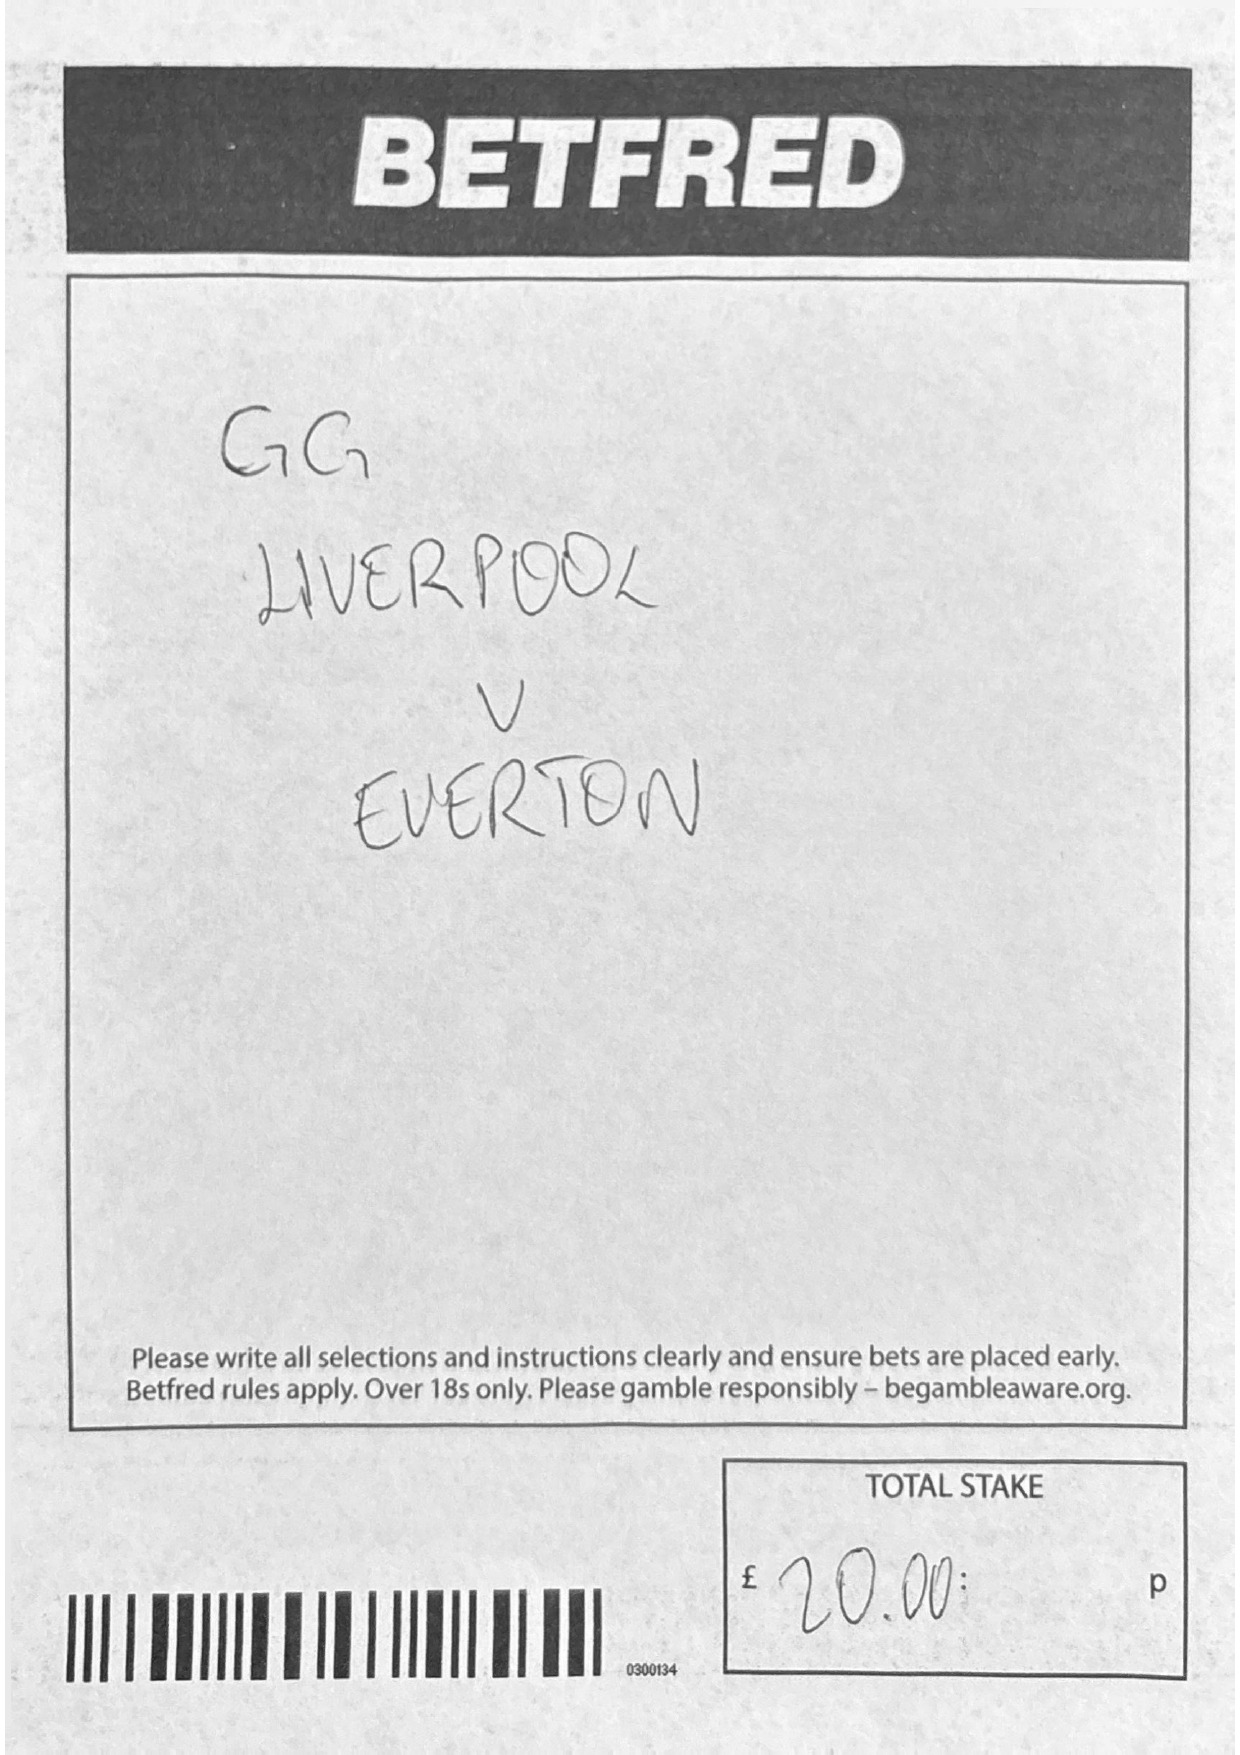 BETFRED
GG
LIVERPOOL
V
EVERTON
Please write all selections and instructions clearly and ensure bets are placed early.
Betfred rules apply. Over 18s only. Please gamble responsibly – begambleaware.org.
TOTAL STAKE
£ 20.00: p
0300134